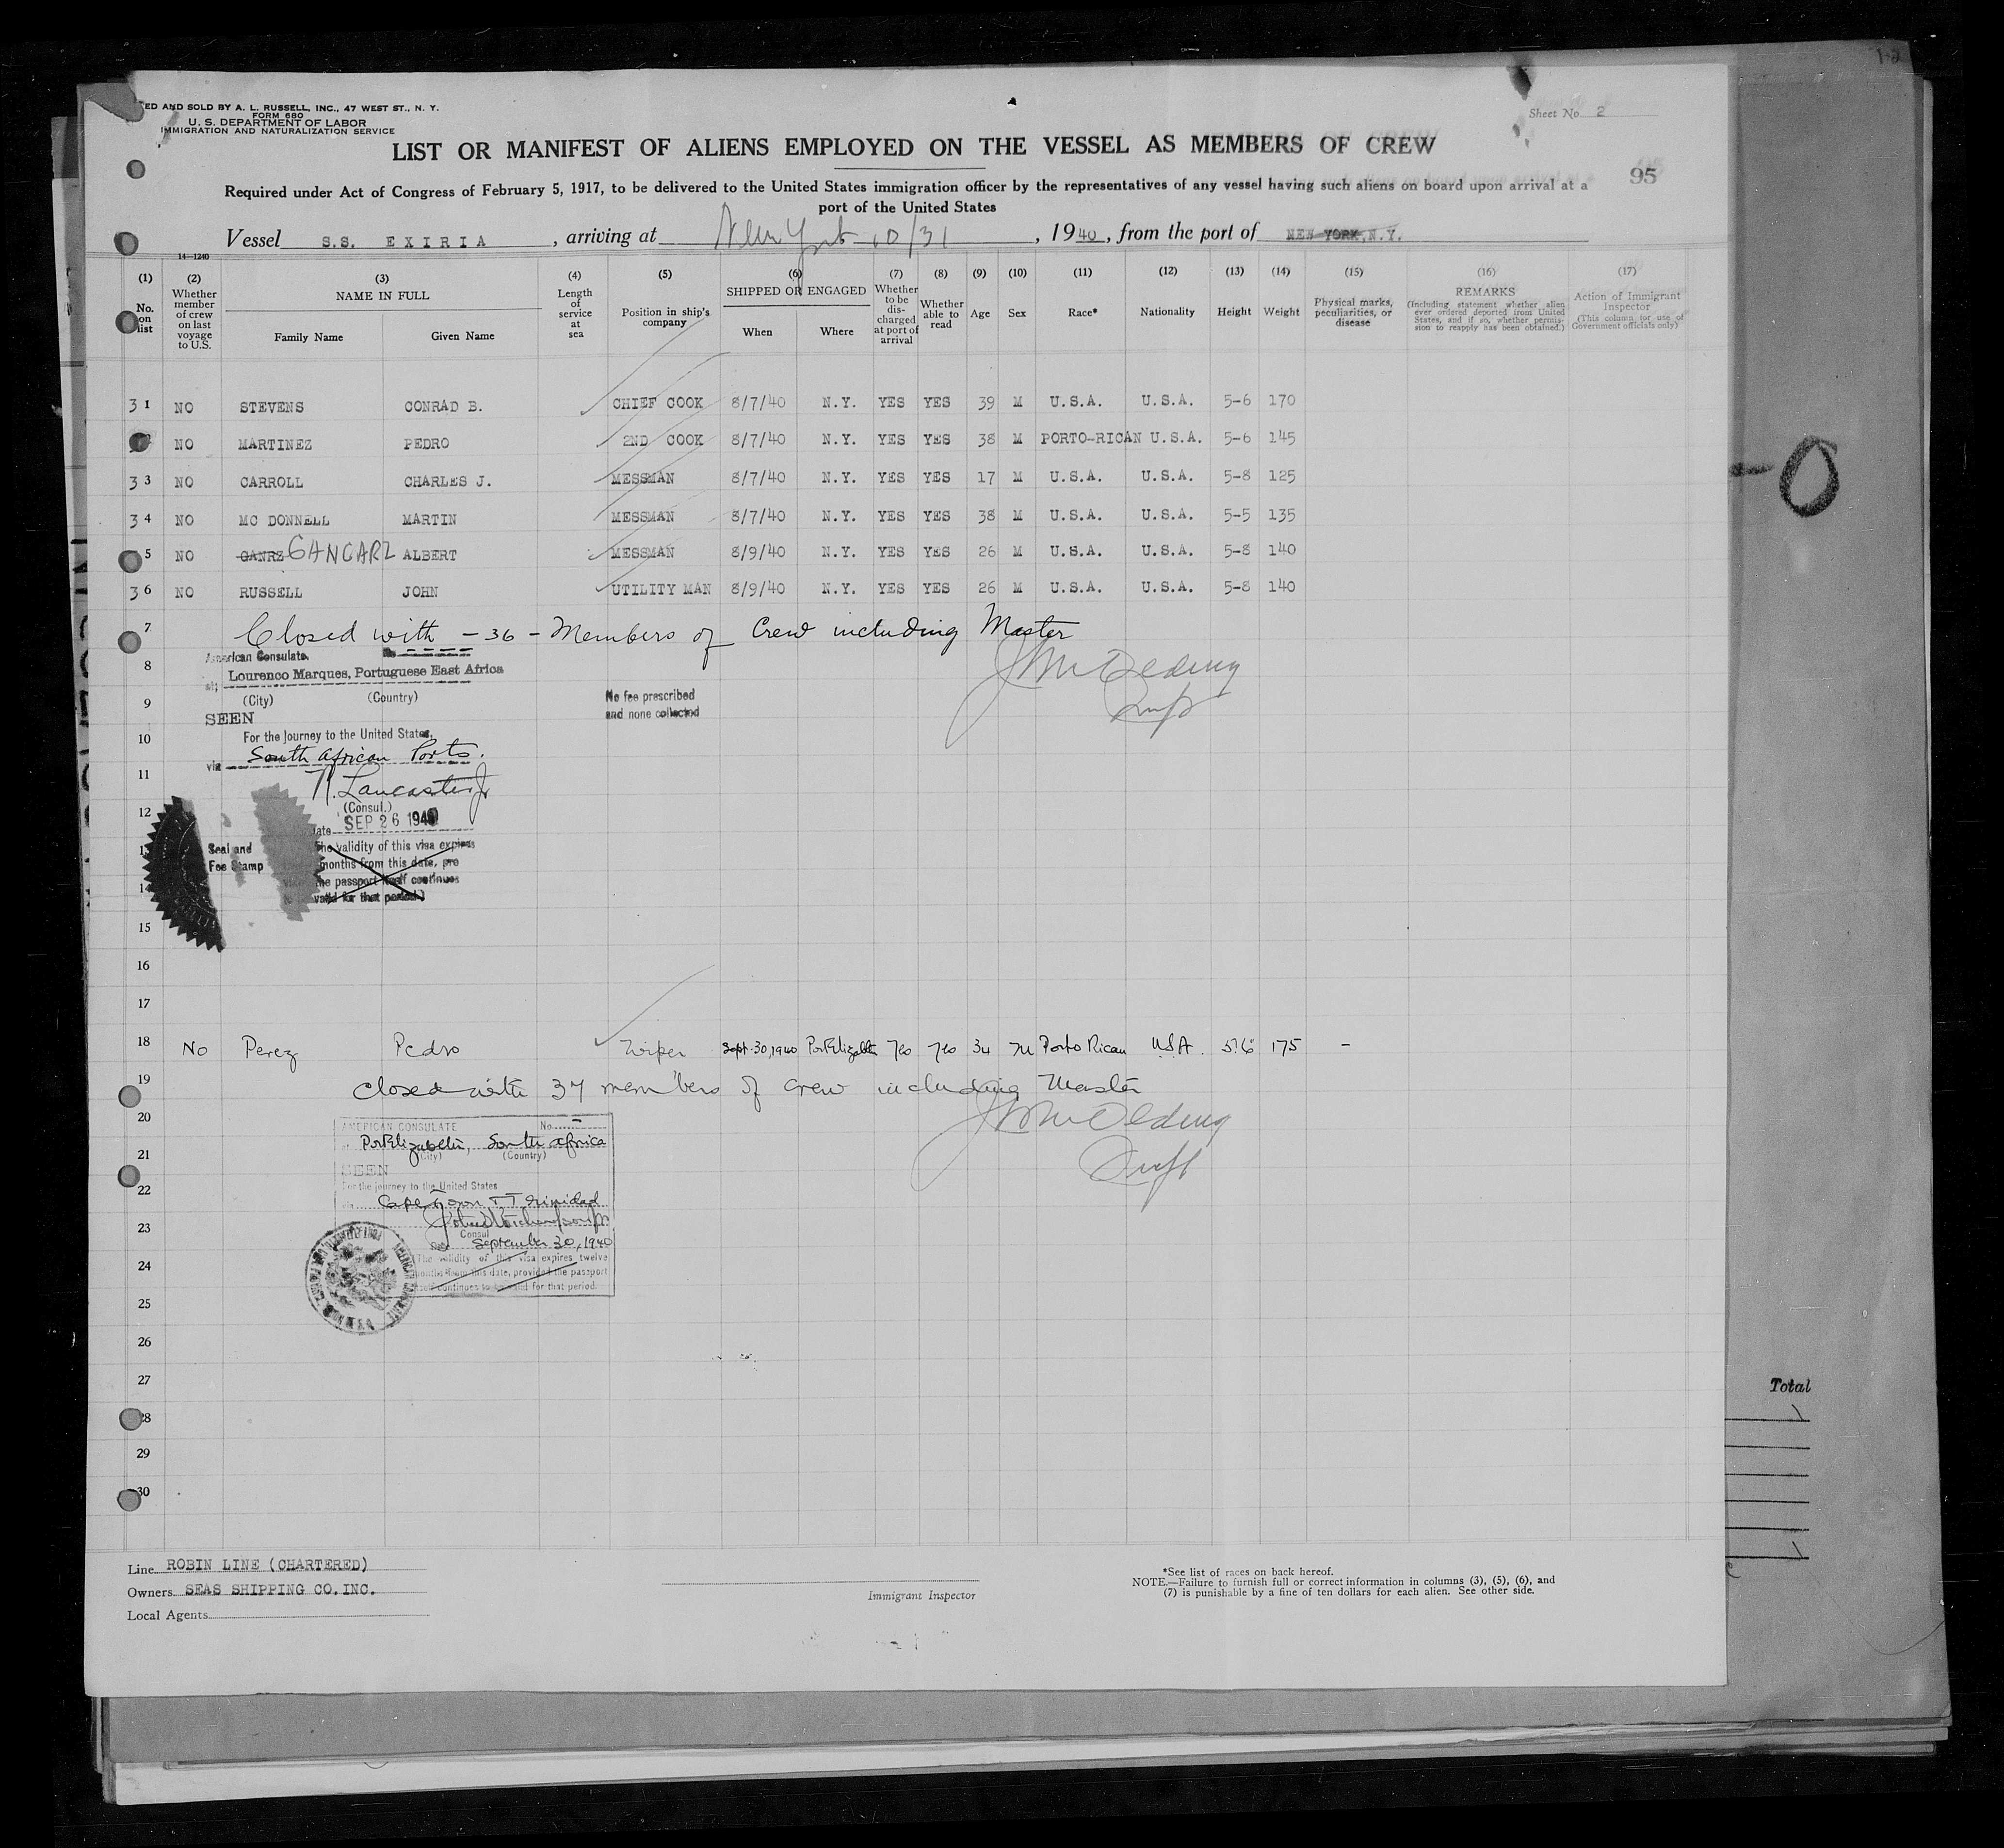 ED AND SOLD BY A. L. RUSSELL, INC., 47 WEST ST., N. Y.
FORM 680
U. S. DEPARTMENT OF LABOR
IMMIGRATION AND NATURALIZATION SERVICE
1-2
Sheet No. 2
LIST OR MANIFEST OF ALIENS EMPLOYED ON THE VESSEL AS MEMBERS OF CREW
95
Required under Act of Congress of February 5, 1917, to be delivered to the United States immigration officer by the representatives of any vessel having such aliens on board upon arrival at a
port of the United States
Vessel S.S. EXIRIA, arriving at New York 10/31, 1940, from the port of NEW YORK, N.Y.
14—1240
(1) (2) (3) (4) (5) (6) (7) (8) (9) (10) (11) (12) (13) (14) (15) (16) (17)
No. on list
Whether member of crew on last voyage to U.S.
NAME IN FULL
Family Name Given Name
Length of service at sea
Position in ship's company
SHIPPED OR ENGAGED
When Where
Whether to be discharged at port of arrival
Whether able to read
Age Sex Race* Nationality Height Weight
Physical marks, peculiarities, or disease
REMARKS
(Including statement whether alien ever ordered deported from United States, and if so, whether permission to reapply has been obtained.)
Action of Immigrant Inspector
(This column for use of Government officials only)
31 NO STEVENS CONRAD B. CHIEF COOK 8/7/40 N.Y. YES YES 39 M U.S.A. U.S.A. 5-6 170
NO MARTINEZ PEDRO 2ND COOK 8/7/40 N.Y. YES YES 38 M PORTO-RICAN U.S.A. 5-6 145
33 NO CARROLL CHARLES J. MESSMAN 8/7/40 N.Y. YES YES 17 M U.S.A. U.S.A. 5-8 125
34 NO MC DONNELL MARTIN MESSMAN 8/7/40 N.Y. YES YES 38 M U.S.A. U.S.A. 5-5 135
5 NO GANRZ GANCARZ ALBERT MESSMAN 8/9/40 N.Y. YES YES 26 M U.S.A. U.S.A. 5-8 140
36 NO RUSSELL JOHN UTILITY MAN 8/9/40 N.Y. YES YES 26 M U.S.A. U.S.A. 5-8 140
7 Closed with - 36 - Members of Crew including Master
American Consulate No
8
at; Lourenco Marques, Portuguese East Africa
(City) (Country)
9
No fee prescribed
and none collected
SEEN
10 For the Journey to the United States,
via South African Ports.
11
Lancaster Jr
(Consul.)
12
Date SEP 26 1940
13 Seal and
Fee Stamp
The validity of this visa expires
months from this date, pro
the passport itself continues
valid for that period.)
14
15
16
17
18 No Perez Pedro Wiper Sept. 30, 1940 Port Elizabeth Yes Yes 34 M Porto Rican USA. 5'6" 175 -
19 Closed with 37 members of crew including Master
20
AMERICAN CONSULATE No.
Port Elizabeth, South Africa
21 (City) (Country)
SEEN
For the journey to the United States
22
Cape Town Trinidad
23
Consul
September 30, 1940
24 (The validity of this visa expires twelve
months from this date, provided the passport
itself continues to be valid for that period.
25
26
27
28
29
30
Total
Line ROBIN LINE (CHARTERED)
Owners SEAS SHIPPING CO. INC.
Local Agents
Immigrant Inspector
*See list of races on back hereof.
NOTE.—Failure to furnish full or correct information in columns (3), (5), (6), and
(7) is punishable by a fine of ten dollars for each alien. See other side.